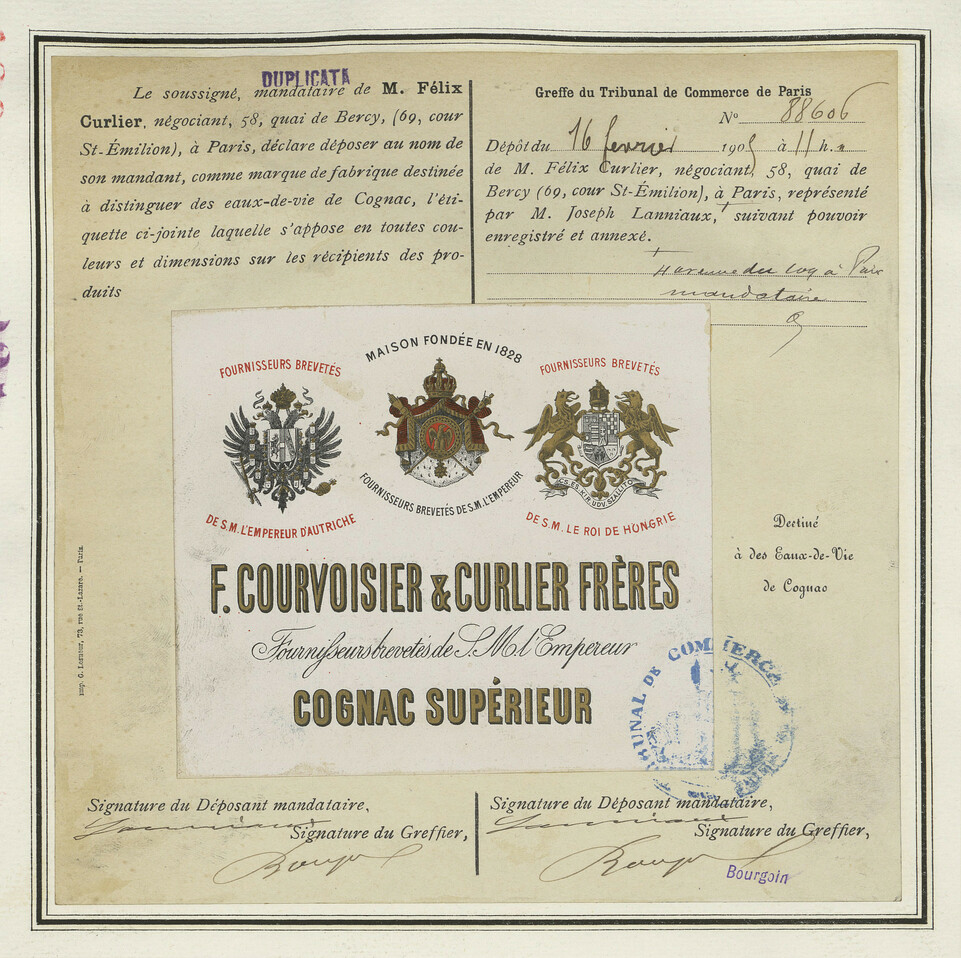 DUPLICATA
Le soussigné, mandataire de M. Félix
Curlier, négociant, 58, quai de Bercy, (69, cour
St-Émilion), à Paris, déclare déposer au nom de
son mandant, comme marque de fabrique destinée
à distinguer des eaux-de-vie de Cognac, l'éti-
quette ci-jointe laquelle s'appose en toutes cou-
leurs et dimensions sur les récipients des pro-
duits
Greffe du Tribunal de Commerce de Paris
No 88606
Dépôt du 16 février 1905 à 11 h.
de M. Félix Curlier, négociant, 58, quai de
Bercy (69, cour St-Émilion), à Paris, représenté
par M. Joseph Lanniaux, suivant pouvoir
enregistré et annexé.
mandataire
MAISON FONDÉE EN 1828
FOURNISSEURS BREVETÉS
FOURNISSEURS BREVETÉS
FOURNISSEURS BREVETÉS DE S.M. L'EMPEREUR
DE S.M. L'EMPEREUR D'AUTRICHE
DE S.M. LE ROI DE HONGRIE
F. COURVOISIER & CURLIER FRÈRES
Fournisseurs brevetés de S. M. l'Empereur
COGNAC SUPÉRIEUR
Destiné
à des Eaux-de-Vie
de Cognac
TRIBUNAL DE COMMERCE
Signature du Déposant mandataire,
Signature du Greffier,
Signature du Déposant mandataire,
Signature du Greffier,
Bourgoin